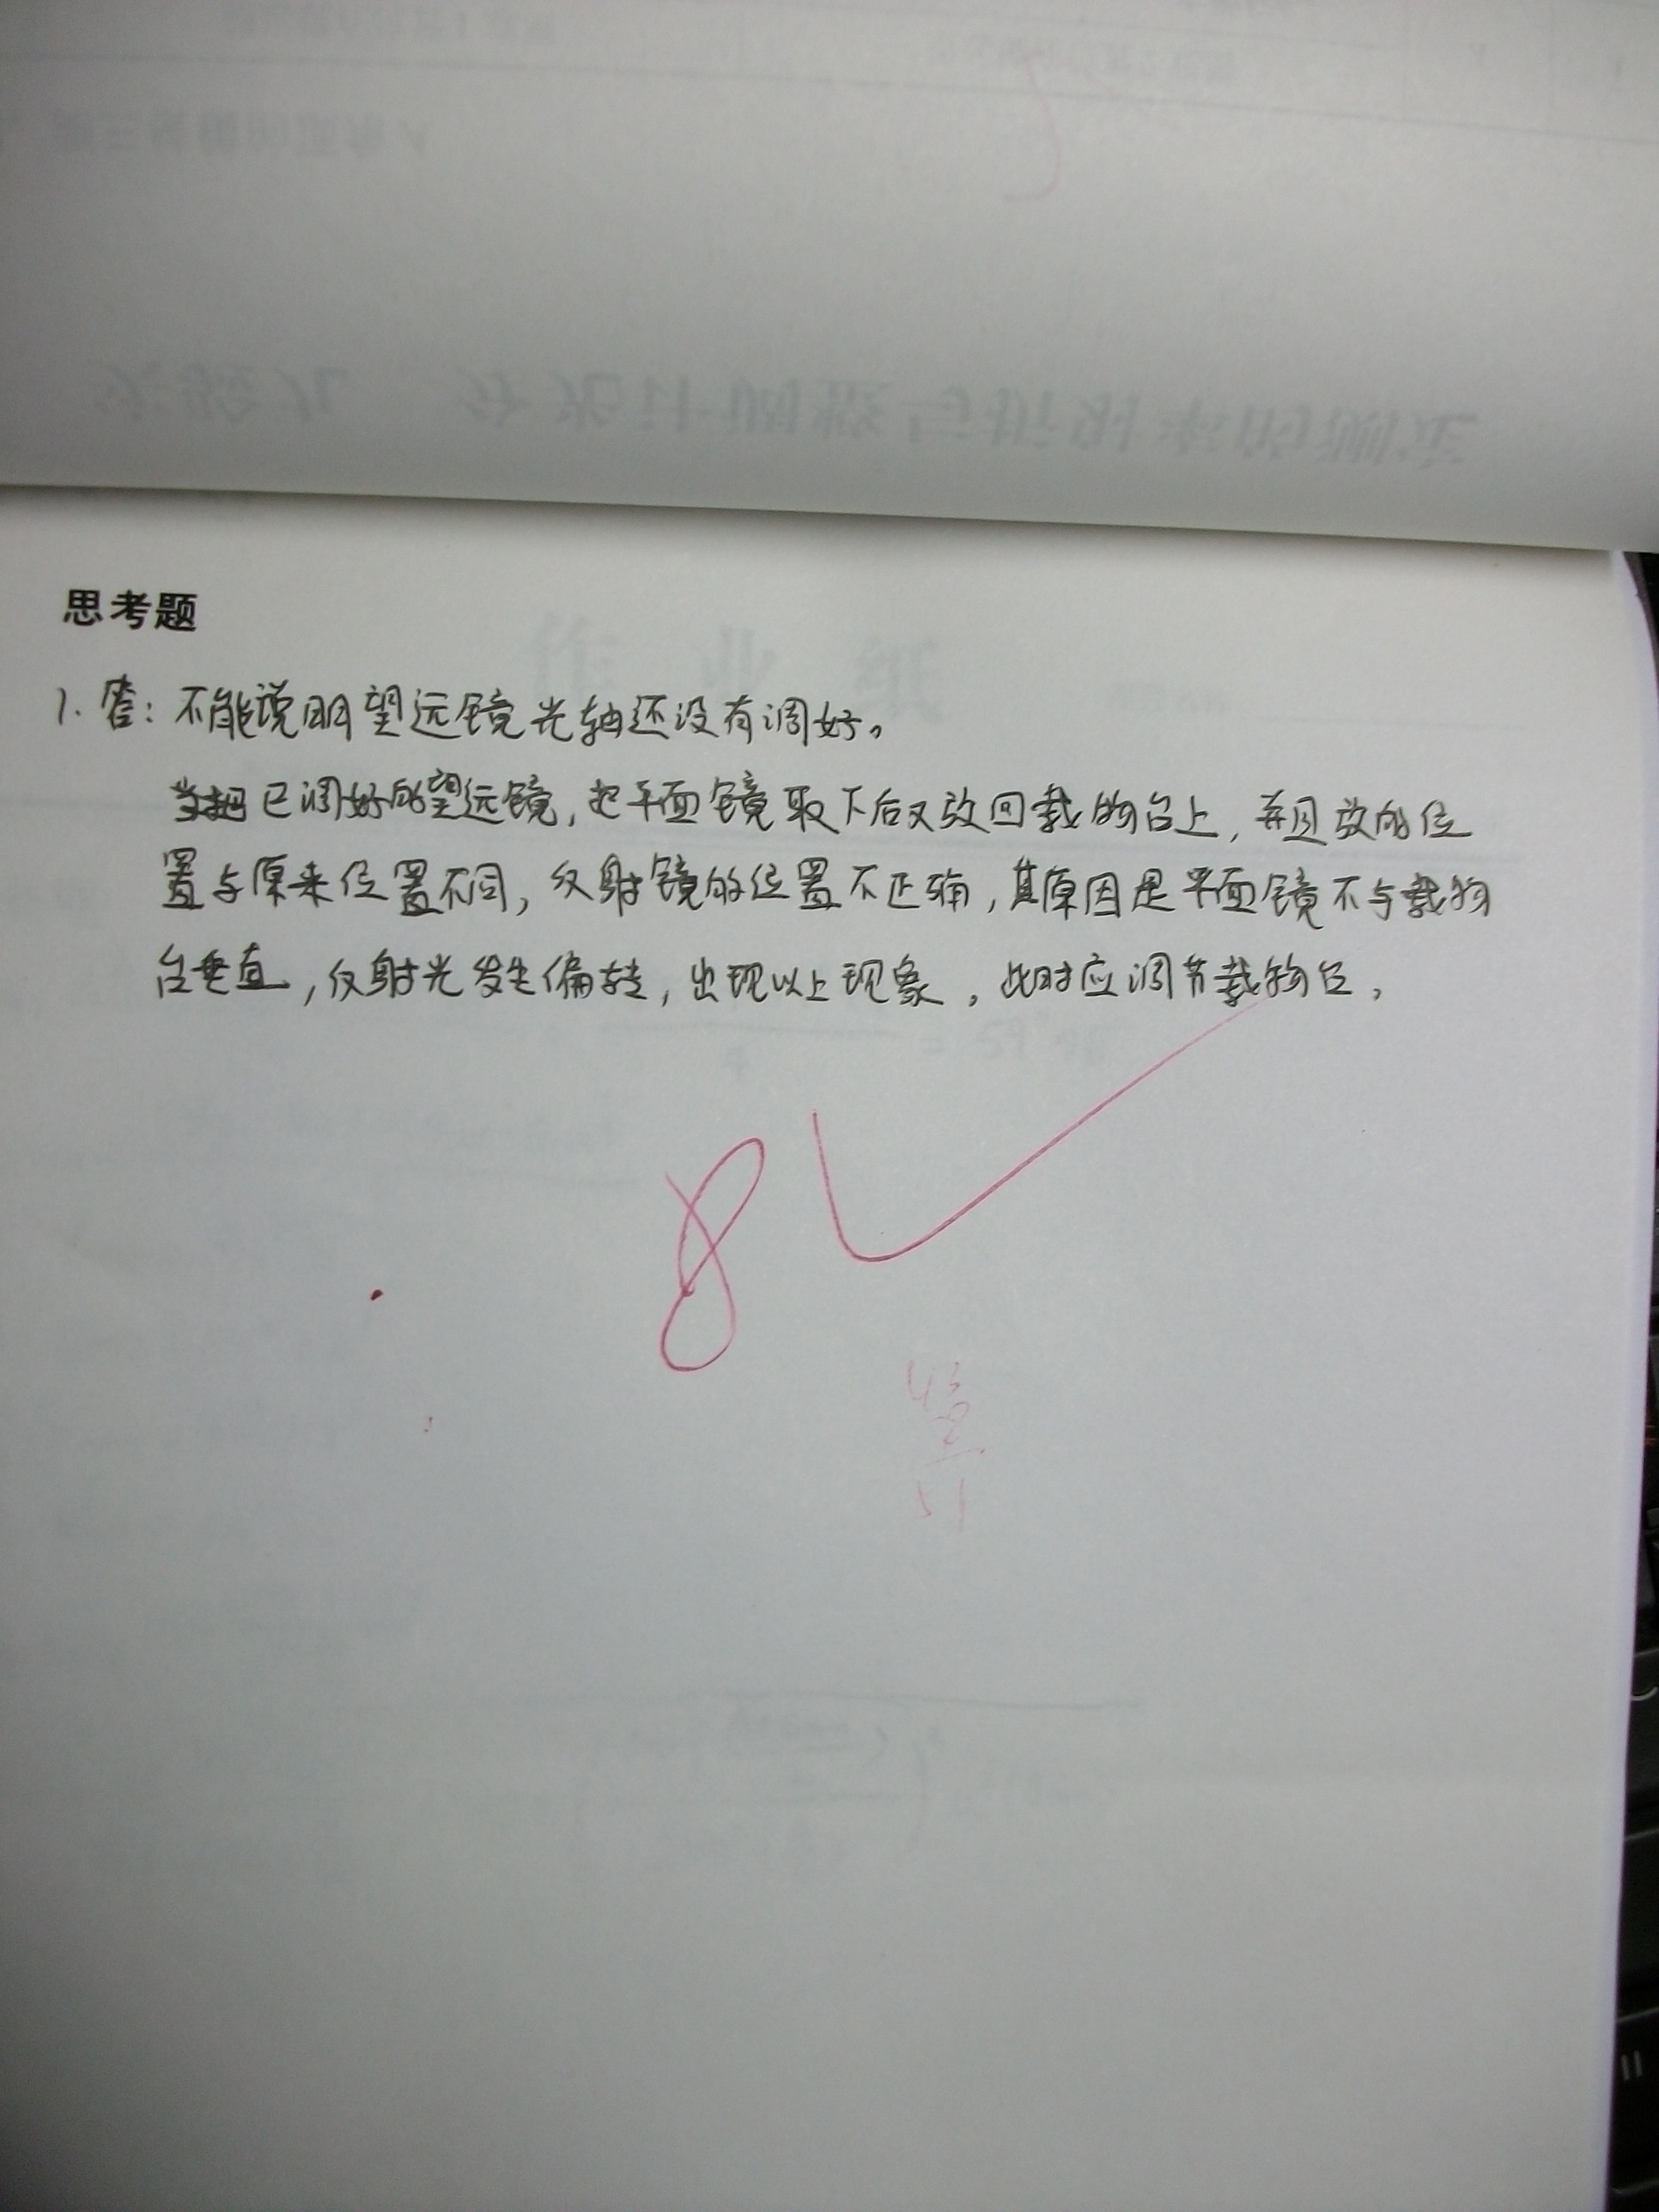 思考题
1. 答：不能说明望远镜光轴还没有调好。
当把已调好的望远镜，把平面镜取下后又放回载物台上，并且放的位
置与原来位置不同，反射镜的位置不正确，其原因是平面镜不与载物
台垂直，反射光发生偏转，出现以上现象，此时应调节载物台，
8
43
8
51